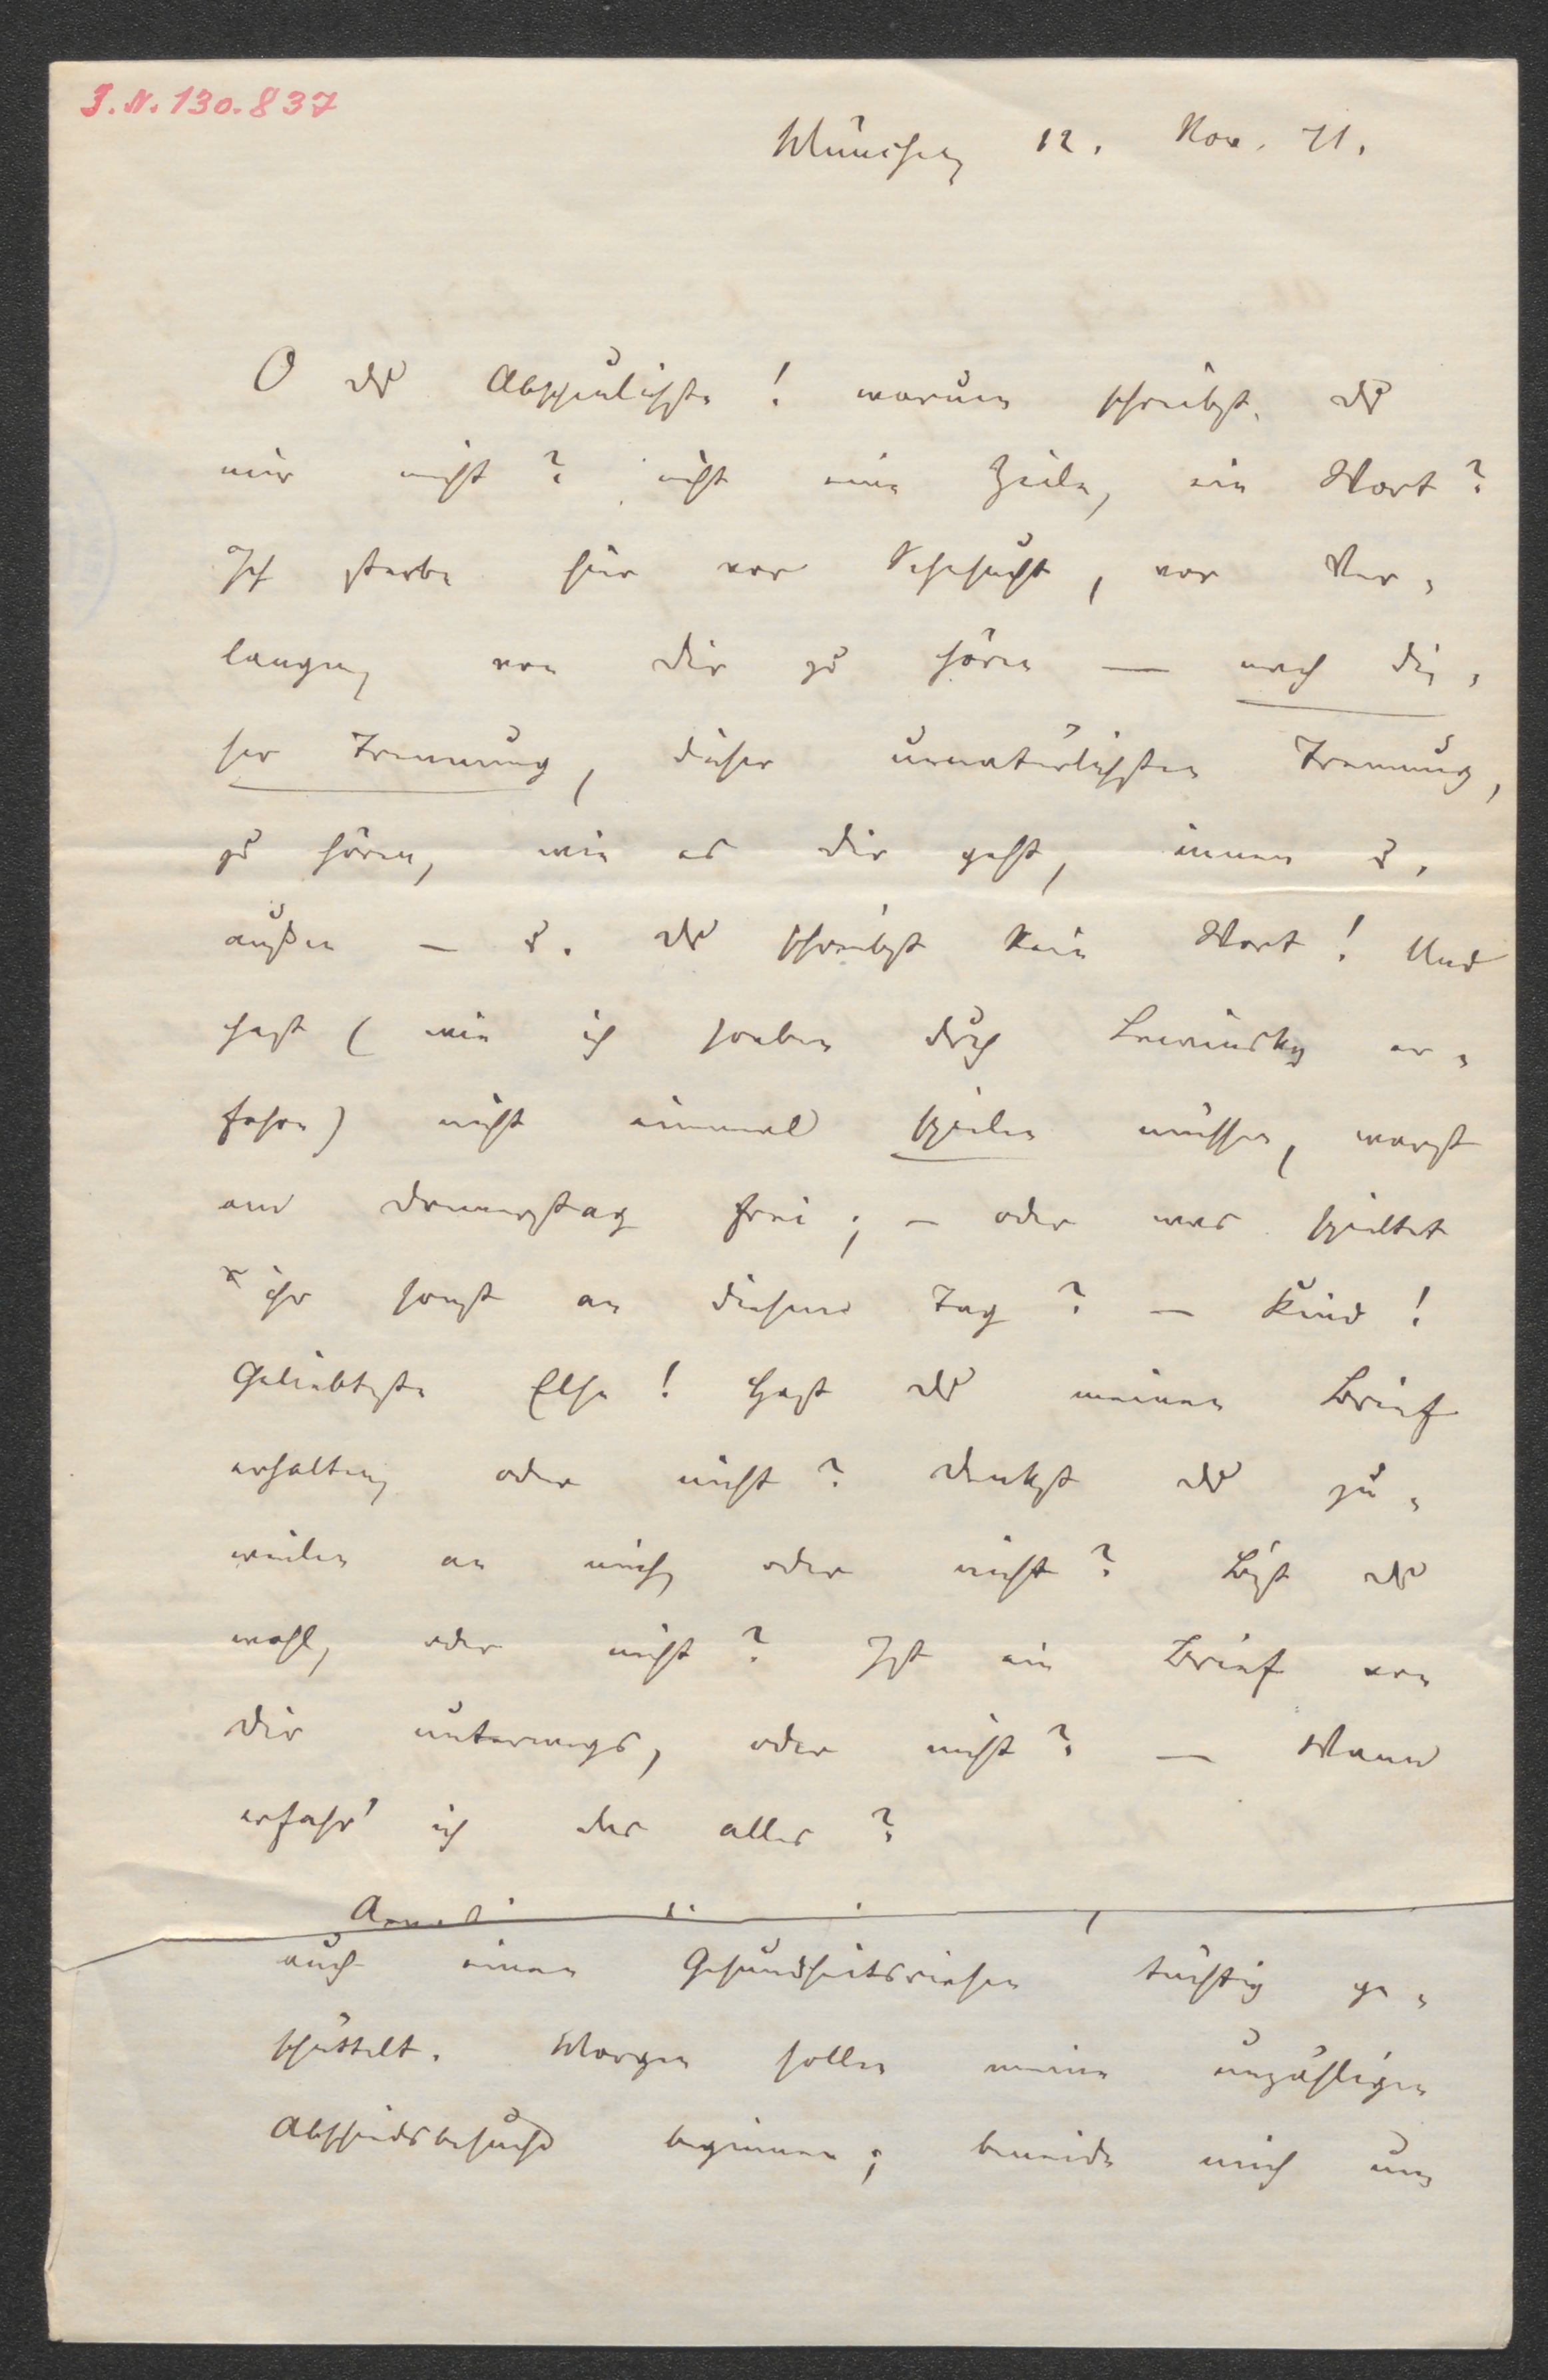 J.N. 130.837
München 12. Nov. 71.
O du Abscheulichste! warum schreibst du
mir nicht? nicht eine Zeile, ein Wort?
Ich sterbe hier vor Sehnsucht, vor Ver-
langen, von dir zu hören — nach die-
ser Trennung, dieser unnatürlichsten Trennung,
zu hören, wie es dir geht, innen u.
außen — u. du schreibst kein Wort! Und
hast (wie ich soeben durch Lewinsky er-
fahre) nicht einmal spielen müssen, warst
am Donnerstag frei; — oder was spieltet
ihr sonst an diesem Tag? — Kind!
Geliebteste Else! Hast du meinen Brief
erhalten, oder nicht? Denkst du zu-
weilen an mich, oder nicht? Bist du
wohl, oder nicht? Ist ein Brief von
dir unterwegs, oder nicht? — Wann
erfahr' ich das alles?
auch einen Gesundheitsriesen tüchtig ge-
schüttelt. Morgen sollen meine unzähligen
Abschiedsbesuche beginnen; beneide mich um